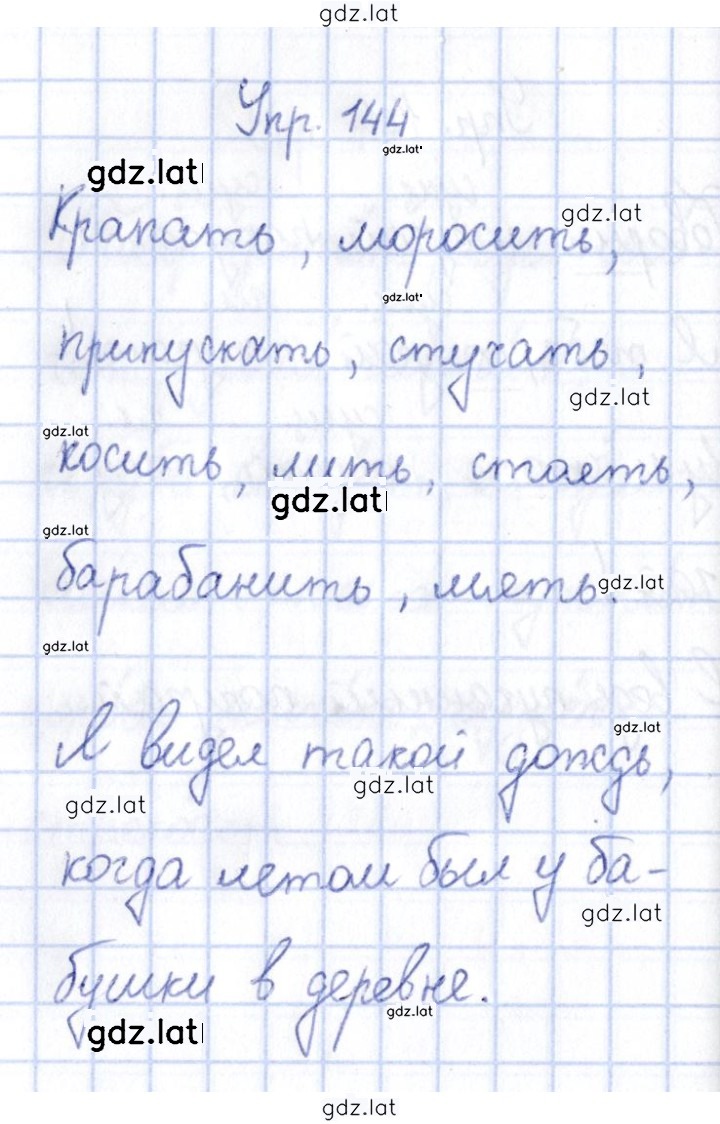 gdz.lat
Упр. 144
gdz.lat
gdz.lat
gdz.lat
Крапать, моросить,
gdz.lat
припускать, стучать,
gdz.lat
gdz.lat
косить, лить, стоять,
gdz.lat
gdz.lat
барабанить, лить.
gdz.lat
gdz.lat
gdz.lat
Я видел такой дождь,
gdz.lat
gdz.lat
когда летом был у ба-
gdz.lat
бушки в деревне.
gdz.lat
gdz.lat
gdz.lat